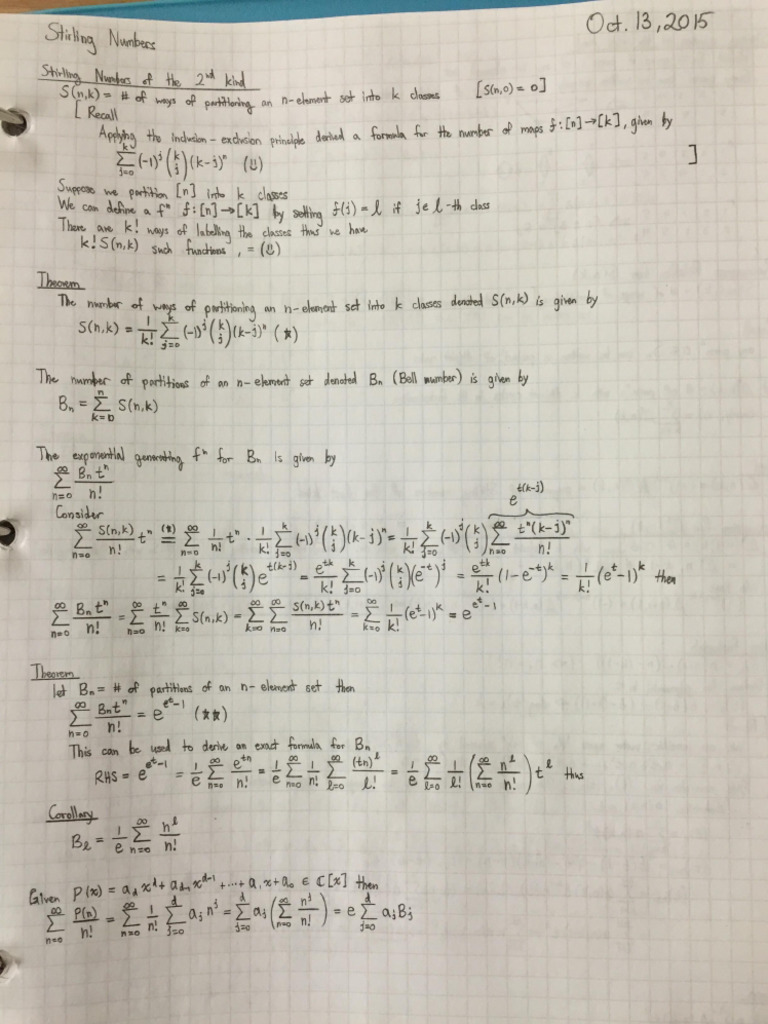 Stirling Numbers
Oct. 13, 2015
Stirling Numbers of the 2nd kind
S(n,k) = # of ways of partitioning an n-element set into k classes [S(n,0) = 0]
[ Recall
Applying the inclusion-exclusion principle derived a formula for the number of maps f:[n]→[k], given by
∑_{j=0}^{k} (-1)^j (k choose j) (k-j)^n (☺) ]
Suppose we partition [n] into k classes
We can define a fⁿ f:[n]→[k] by setting f(j) = l if j∈ l-th class
There are k! ways of labelling the classes thus we have
k! S(n,k) such functions, = (☺)
Theorem
The number of ways of partitioning an n-element set into k classes denoted S(n,k) is given by
S(n,k) = 1/k! ∑_{j=0}^{k} (-1)^j (k choose j) (k-j)^n (★)
The number of partitions of an n-element set denoted Bn (Bell number) is given by
Bn = ∑_{k=0}^{n} S(n,k)
The exponential generating fⁿ for Bn is given by
∑_{n=0}^{∞} Bn t^n / n!
Consider
∑_{n=0}^{∞} S(n,k)/n! t^n (★)= ∑_{n=0}^{∞} 1/n! t^n · 1/k! ∑_{j=0}^{k} (-1)^j (k choose j) (k-j)^n = 1/k! ∑_{j=0}^{k} (-1)^j (k choose j) ∑_{n=0}^{∞} t^n (k-j)^n / n! e^{t(k-j)}
= 1/k! ∑_{j=0}^{k} (-1)^j (k choose j) e^{t(k-j)} = e^{tk}/k! ∑_{j=0}^{k} (-1)^j (k choose j) (e^{-t})^j = e^{tk}/k! (1-e^{-t})^k = 1/k! (e^t-1)^k then
∑_{n=0}^{∞} Bn t^n / n! = ∑_{n=0}^{∞} t^n/n! ∑_{k=0}^{∞} S(n,k) = ∑_{k=0}^{∞} ∑_{n=0}^{∞} S(n,k) t^n / n! = ∑_{k=0}^{∞} 1/k! (e^t-1)^k = e^{e^t-1}
Theorem
let Bn = # of partitions of an n-element set then
∑_{n=0}^{∞} Bn t^n / n! = e^{e^t-1} (★★)
This can be used to derive an exact formula for Bn
RHS = e^{e^t-1} = 1/e ∑_{n=0}^{∞} e^{tn}/n! = 1/e ∑_{n=0}^{∞} 1/n! ∑_{l=0}^{∞} (tn)^l / l! = 1/e ∑_{l=0}^{∞} 1/l! (∑_{n=0}^{∞} n^l/n!) t^l thus
Corollary
B_l = 1/e ∑_{n=0}^{∞} n^l/n!
Given P(x) = a_d x^d + a_{d-1} x^{d-1} + ... + a_1 x + a_0 ∈ ℂ[x] then
∑_{n=0}^{∞} P(n)/n! = ∑_{n=0}^{∞} 1/n! ∑_{j=0}^{d} a_j n^j = ∑_{j=0}^{d} a_j (∑_{n=0}^{∞} n^j/n!) = e ∑_{j=0}^{d} a_j B_j